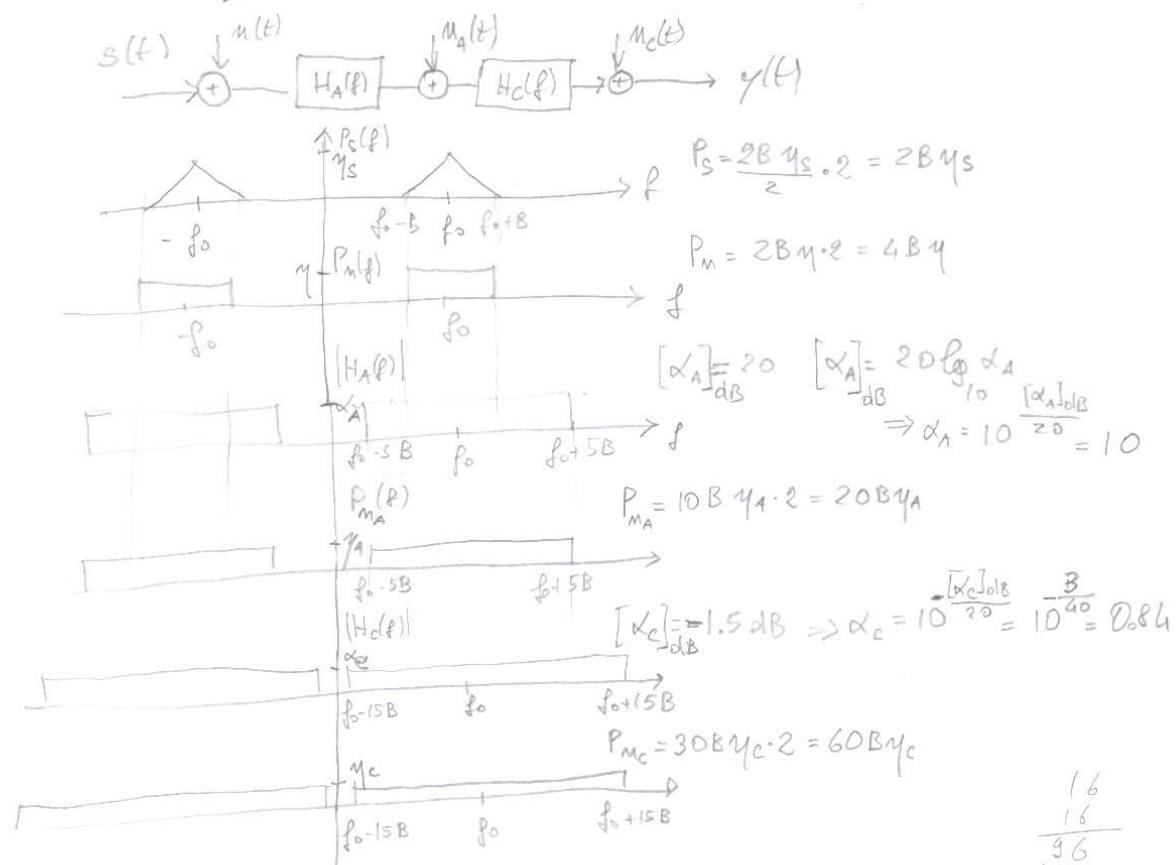 s(t) n(t) n_A(t) n_c(t)
+ H_A(f) + H_C(f) + y(t)
P_s(f)
η_s
f
-f_0 f_0-B f_0 f_0+B
P_s = 2B η_s / 2 · 2 = 2B η_s
η P_n(f)
P_n = 2B η · 2 = 4B η
-f_0 f_0 f
|H_A(f)|
[α_A]_dB = 20 [α_A]_dB = 20 log_10 α_A
α_A
⇒ α_A = 10^([α_A]_dB / 20) = 10
f_0-5B f_0 f_0+5B f
P_{n_A}(f)
P_{n_A} = 10B η_A · 2 = 20B η_A
η_A
f_0-5B f_0+5B
|H_c(f)|
[α_c]_dB = -1.5 dB ⇒ α_c = 10^(-[α_c]_dB / 20) = 10^(-3/40) = 0.84
α_c
f_0-15B f_0 f_0+15B
P_{n_c} = 30B η_c · 2 = 60B η_c
η_c
f_0-15B f_0 f_0+15B
16
16
96